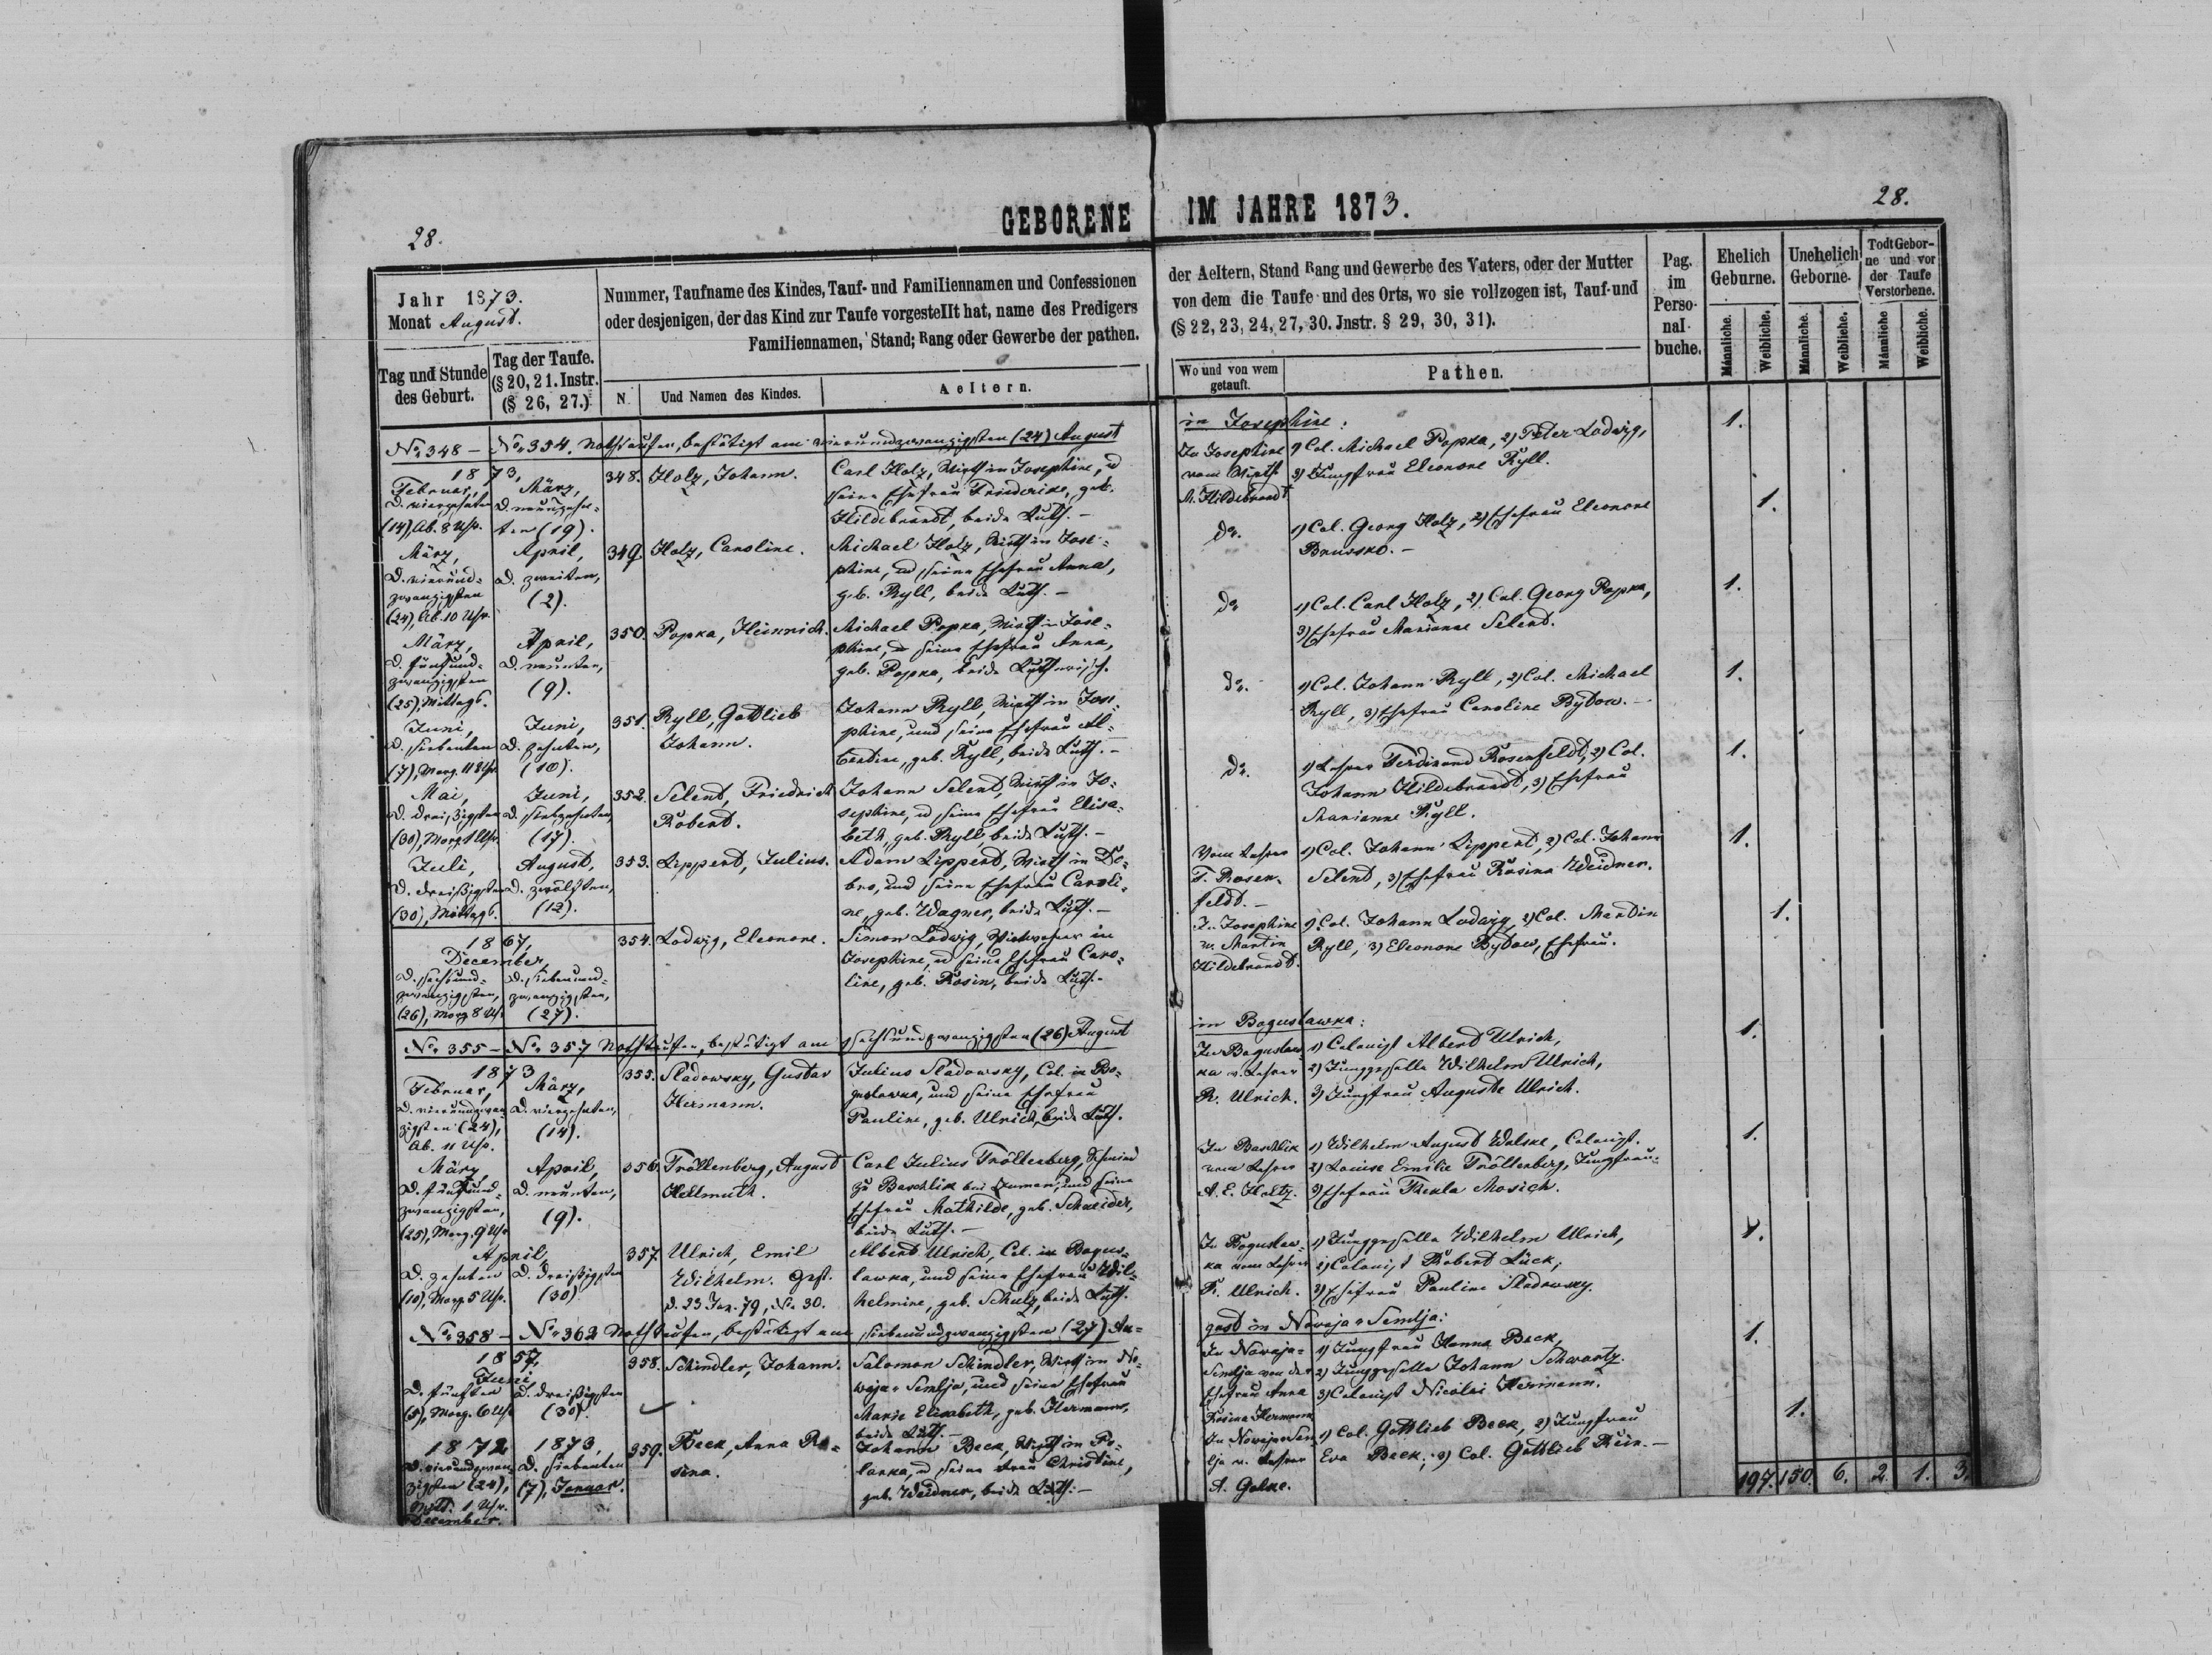 GEBORENE IM JAHRE 1873.
28.
28.
Jahr 1873.
Monat August.
Tag und Stunde des Geburt.
Tag der Taufe.
(§ 20, 21. Instr.
(§ 26, 27.)
Nummer, Taufname des Kindes, Tauf- und Familiennamen und Confessionen
oder desjenigen, der das Kind zur Taufe vorgestellt hat, name des Predigers
Familiennamen, Stand; Rang oder Gewerbe der pathen.
N.
Und Namen des Kindes.
Aeltern.
der Aeltern, Stand Rang und Gewerbe des Vaters, oder der Mutter
von dem die Taufe und des Orts, wo sie vollzogen ist, Tauf-und
(§ 22, 23, 24, 27, 30. Jnstr. § 29, 30, 31).
Wo und von wem
getauft.
Pathen.
Pag.
im
Perso-
nal-
buche.
Ehelich
Geburne.
Unehelich
Geborne.
Todt Gebor-
ne und vor
der Taufe
Verstorbene.
Männliche.
Weibliche.
Männliche.
Weibliche.
Männliche
Weibliche.
No 348 – No 354. Nothtaufen, bestätigt am vierundzwanzigsten (24) August
in Josephine:
1873,
Februar,
D. vierzehnten
(14), Ab. 8 Uhr.
März,
D. neunzehn-
ten (19).
348.
Holz, Johann.
Carl Holz, Wirth in Josephine, u
seine Ehefrau Friedericke, geb.
Hildebrandt, beide Luth. –
In Josephine
vom Wirth
M. Hildebrandt
1) Col. Michael Popka, 2) Peter Ludwig,
3) Jungfrau Eleonore Ryll.
1.
März,
D. vierund-
zwanzigsten
(24), Ab. 10 Uhr.
April,
D. zweiten,
(2).
349.
Holz, Caroline.
Michael Holz, Wirth in Jose-
phine, u seine Ehefrau Anna,
geb. Ryll, beide Luth. –
do.
1) Col. Georg Holz, 2) Ehefrau Eleonore
1.
März,
D. fünfund-
zwanzigsten
(25), Mittags.
April,
D. neunten,
(9).
350.
Popka, Heinrich.
Michael Popka, Wirth in Jose-
phine, u seine Ehefrau Anna,
geb. Popka, beide Lutherisch.
do
1) Col. Carl Holz, 2) Col. Georg Popka,
3) Ehefrau Marianne Selent.
1.
Juni,
D. siebenten
(7), Morg. 11 Uhr
Juni,
D. zehnten,
(10).
351.
Ryll, Gottlieb
Johann.
Johann Ryll, Wirth in Jose-
phine, und seine Ehefrau Al-
bertine, geb. Ryll, beide Luth. –
do.
1) Col. Johann Ryll, 2) Col. Michael
Ryll, 3) Ehefrau Caroline Bydow. –
1.
Mai,
D. dreißigsten
(30), Morg. 1 Uhr.
Juni,
D. siebzehnten,
(17).
352.
Selent, Friedrich
Robert.
Johann Selent, Wirth in Jo-
sephine, u seine Ehefrau Elisa-
beth, geb. Ryll, beide Luth. –
do.
1) Lehrer Ferdinand Rosenfeldt, 2) Col.
Johann Hildebrandt, 3) Ehefrau
Marianne Ryll.
1.
Juli,
D. dreißigsten
(30), Mittags.
August,
D. zwölften,
(12).
353.
Lippert, Julius.
Adam Lippert, Wirth in Do-
bro, und seine Ehefrau Caroli-
ne, geb. Wagner, beide Luth. –
Vom Lehrer
F. Rosen-
feldt. –
1) Col. Johann Lippert, 2) Col. Johann
Selent, 3) Ehefrau Rosina Weidner.
1.
1867,
December,
D. sechsund-
zwanzigsten,
(26), Morg. 8 Uhr
D. siebenund-
zwanzigsten,
(27).
354.
Ludwig, Eleonore.
Simon Ludwig, Einwohner in
Josephine, u seine Ehefrau Caro-
line, geb. Rosin, beide Luth. –
In Josephine
v. Martin
Hildebrandt.
1) Col. Johann Ludwig, 2) Col. Martin
Ryll, 3) Eleonore Bydow, Ehefrau.
1.
No 355 – No 357 Nothtaufen, bestätigt am sechsundzwanzigsten (26) August
in Boguslawka:
1873
Februar,
D. vierundzwan-
zigsten (24),
Ab. 11 Uhr.
März,
D. vierzehnten,
(14).
355.
Sladowsky, Gustav
Hermann.
Julius Sladowsky, Col. in Bo-
guslawka, und seine Ehefrau
Pauline, geb. Ulrich, beide Luth.
In Boguslaw-
ka v. Lehrer
R. Ulrich.
1) Colonist Albert Ulrich,
2) Junggeselle Wilhelm Ulrich,
3) Jungfrau Auguste Ulrich.
1.
März,
D. fünfund-
zwanzigsten,
(25), Morg. 9 Uhr
April,
D. neunten,
(9).
356.
Tröllenberg, August
Hellmuth.
Carl Julius Tröllenberg, Schmied
zu Baschlik bei Human, und seine
Ehefrau Mathilde, geb. Schneider,
beide Luth. –
In Baschlik
vom Lehrer
A. E. Holtz.
1) Wilhelm August Welske, Colonist.
2) Louise Emilie Tröllenberg, Jungfrau.
3) Ehefrau Thekla Mosich.
1.
April,
D. zehnten
(10), Morg. 5 Uhr.
D. dreißigsten
(30)
357.
Ulrich, Emil
Wilhelm. Gest.
d. 23 Jan. 79, No 30.
Albert Ulrich, Col. in Bogus-
lawka, und seine Ehefrau Wil-
helmine, geb. Schulz, beide Luth.
In Boguslaw-
ka vom Lehrer
R. Ulrich.
1) Junggeselle Wilhelm Ulrich,
2) Colonist Robert Lück,
3) Ehefrau Pauline Sladowsky.
1.
No 358 – No 362 Nothtaufen, bestätigt am siebenundzwanzigsten (27) Au-
gust in Nowaja-Semlja:
1857,
Juni,
D. fünften
(5), Morg. 6 Uhr
D. dreißigsten
(30).
358.
Schindler, Johann.
Salomon Schindler, Wirth in No-
waja-Semlja, und seine Ehefrau
Marie Elisabeth, geb. Hermann,
beide Luth. –
In Nowaja-
Semlja von der
Ehefrau Anna
Rosina Hermann
1) Jungfrau Hanna Beck,
2) Junggeselle Johann Schwartz.
3) Colonist Nicolai Hermann.
1.
1872
D. vierundzwan-
zigsten (24),
Mitt. 1 Uhr.
December.
1873,
D. siebenten
(7), Januar.
359.
Beck, Anna Ro-
sina.
Johann Beck, Wirth in Po-
lanka, u seine Frau Christine,
geb. Weidner, beide Luth. –
In Nowaja-Sem-
lja v. Lehrer
A. Golke.
1) Col. Gottlieb Beck, 2) Jungfrau
Eva Beck, 3) Col. Gottlieb Rein. –
1.
197. 150. 6. 2. 1. 3.